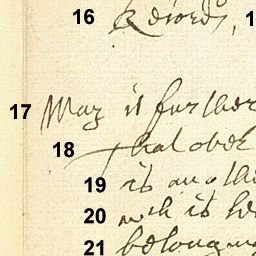 16 Records, 1
17 May it further
18 That over
19 its an othe
20 wch is he
21 belongin